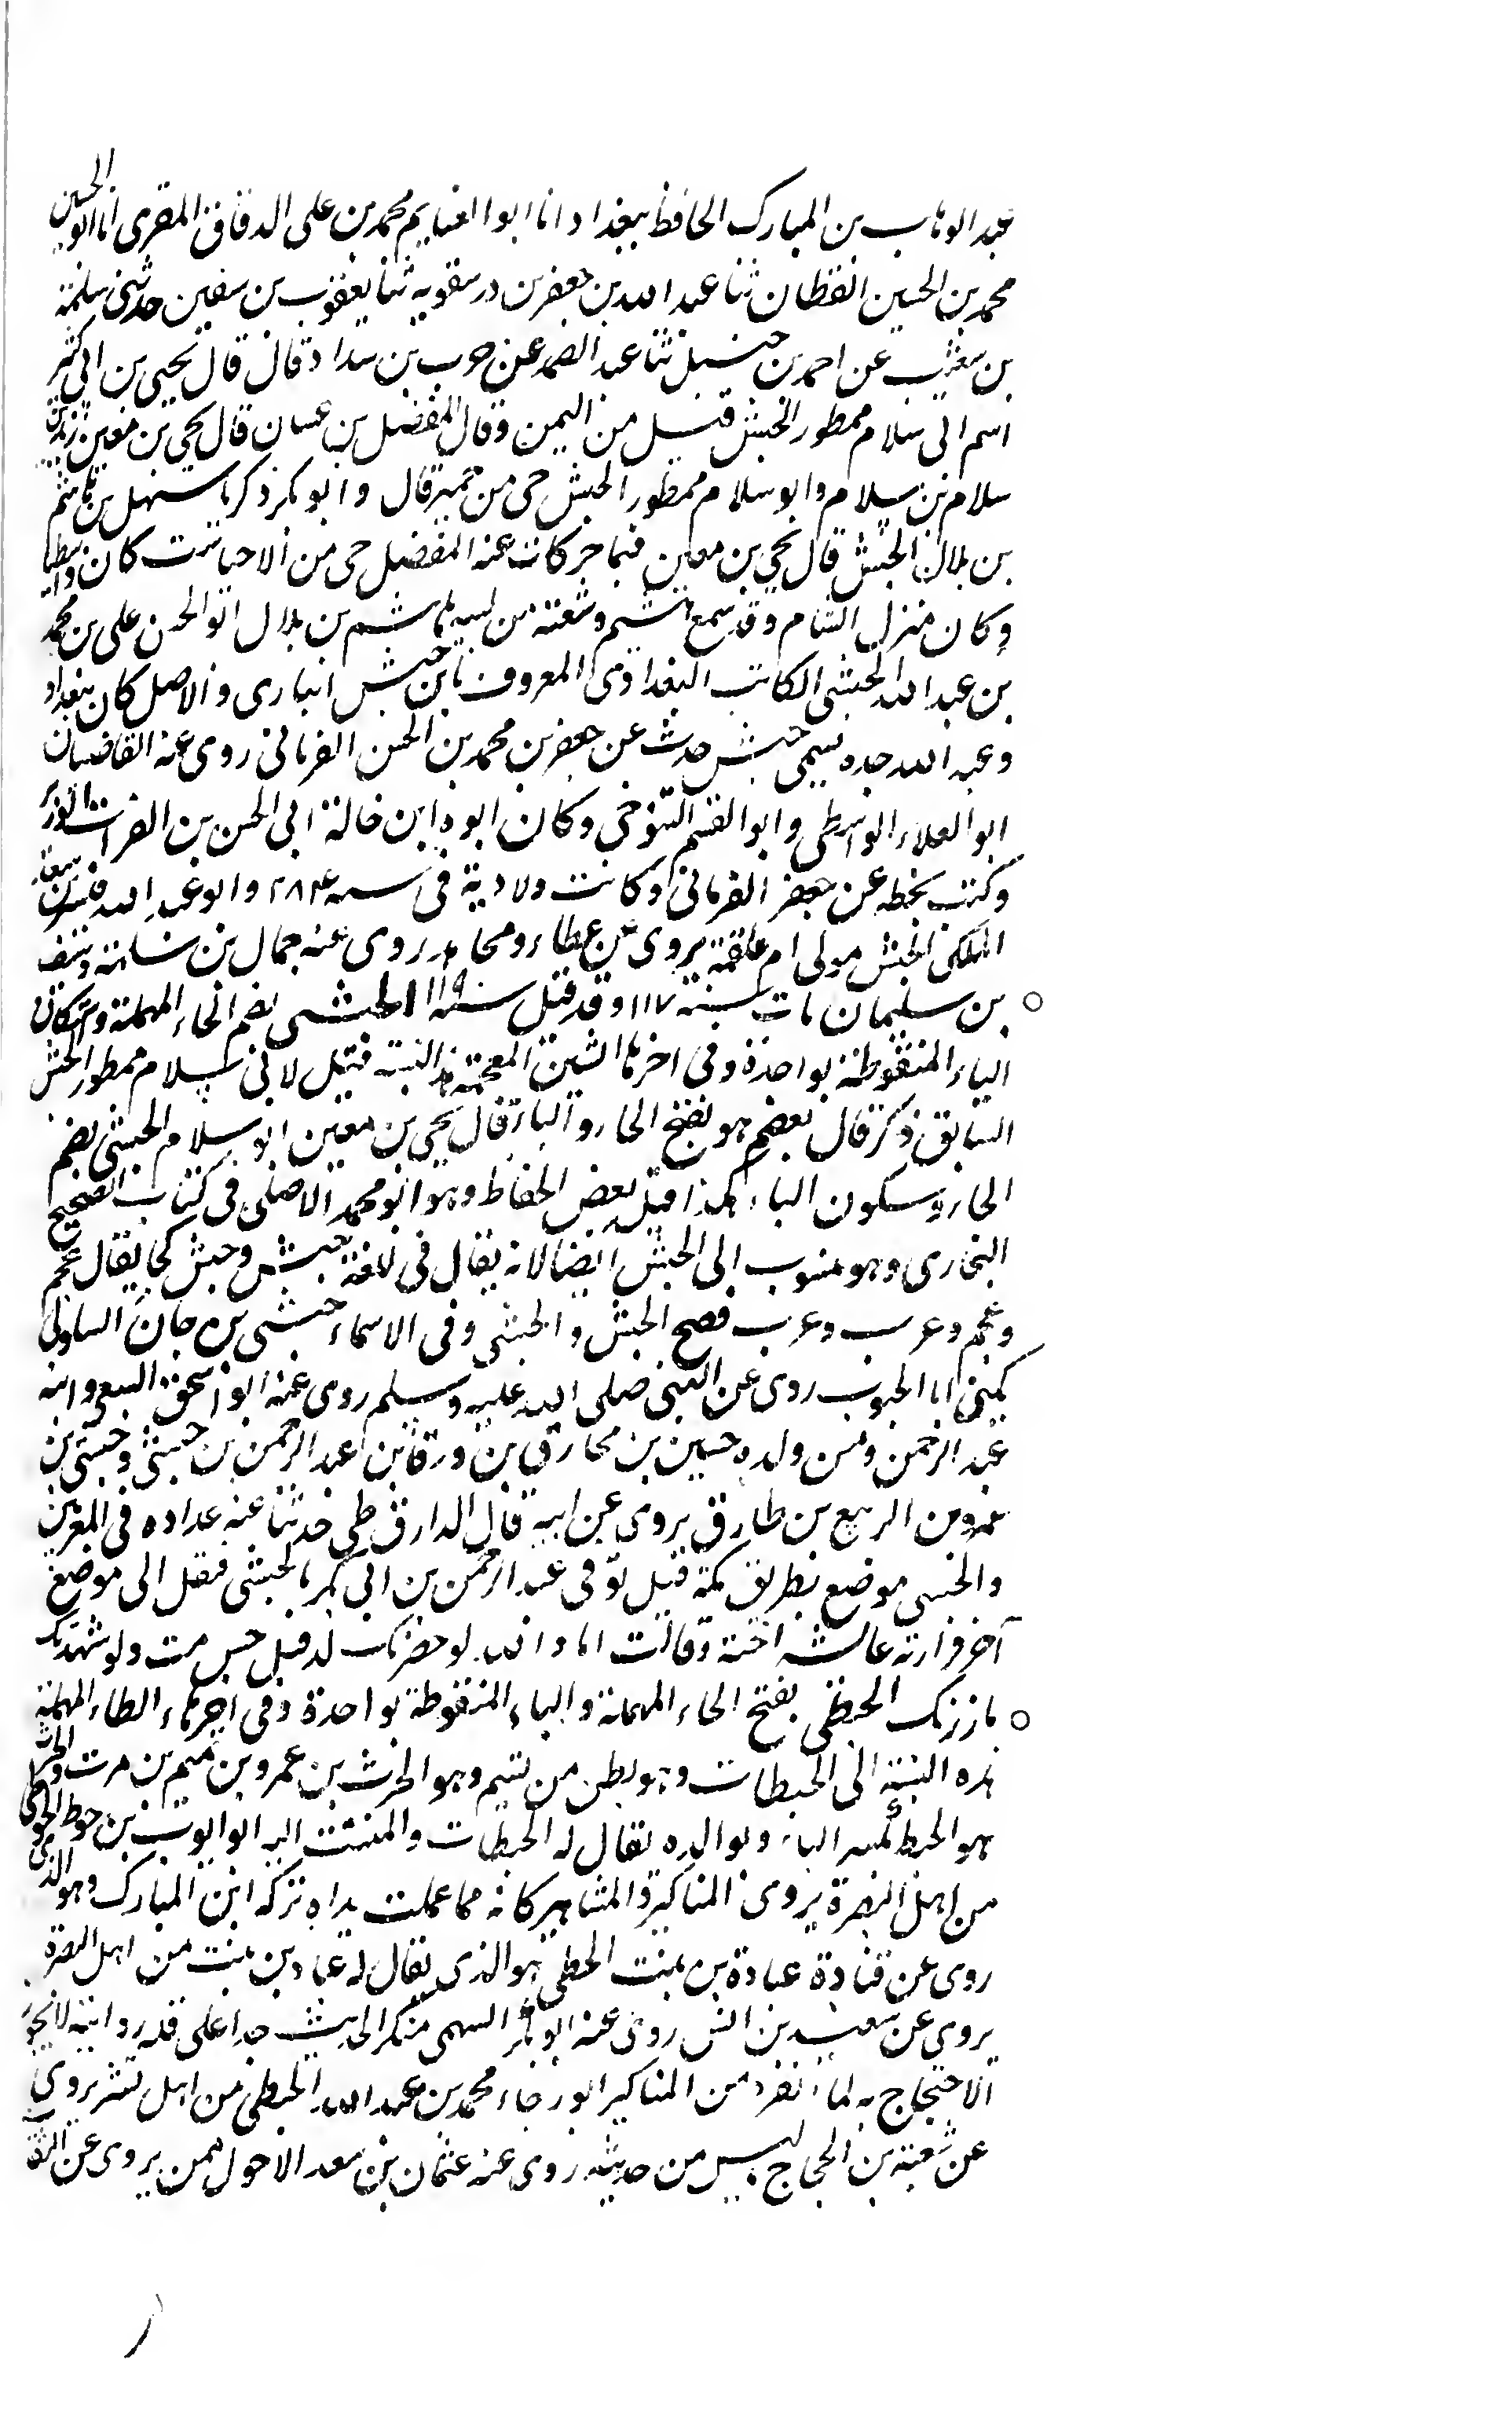 عبد الوهاب بن المبارك الحافظ ببغداد انا ابو الغنايم محمد بن علي الدقاق المقرى انا ابو الحسين
محمد بن الحسين القطان ثنا عبد الله بن جعفر بن درستويه ثنا يعقوب بن سفين حدثني سلمة
بن شبيب عن احمد بن حنبل ثنا عبد الصمد عن حرب بن شداد قال قال يحيى بن ابي كثير
اسم ابي سلام ممطور الحبشي قبيل من اليمن وقال المفضل بن غسان قال يحيى بن معين زيد بن
سلام بن سلام وابو سلام ممطور الحبشي حي من حمير قال وابو بكر ذكر يا سهل بن هاشم
بن بلال الحبشي قال يحيى بن معين فيما حكاه عنه المفضل حي من الاحباش كان واسطيا
وكان منزل الشام وقد سمع هشيم وشعبة من هاشم بن بلال ابو الحسن علي بن محمد
بن عبد الله الحبشي الكاتب البغدادي المعروف بابن حبش انباري والاصل كان ببغداد
وعبد الله جده يسمى حبش حدث عن جعفر بن محمد بن الحسن الفريابي روى عنه القاضيان
ابو العلاء الواسطي وابو القسم التنوخي وكان ابوه ابن خالة ابي الحسن بن الفرات الوزير
وكتب بخطه عن جعفر الفريابي وكانت ولادته في سنة ٢٨٤ وابو عبد الله قيس بن سعد
المكي الحبشي مولى ام علقمة يروي عن عطاء ومجاهد روى عنه جمال بن سلمة وسيف
بن سليمان مات سنة ١١٧ وقد قيل سنة ١١٩ الحبشي بضم الحاء المهملة واسكان
الباء المنقوطة بواحدة وفي اخرها الشين المعجمة هذه النسبة قيل لابي سلام ممطور الحبشي
السابق ذكر قال بعضهم هو بفتح الحاء والباء وقال يحيى بن معين ابو سلام الحبشي بضم
الحاء وسكون الباء هكذا قيل بعض الحفاظ وهو ابو محمد الاصيلي في كتاب الصحيح
البخاري وهو منسوب الى الحبش ايضا لانه يقال في لغة حبش وحبش كما يقال عجم
وعجم وعرب وعرب فصح الحبش والحبشي وفي الاسماء حبشي بن جنادة السلولي
يكنى ابا الجنوب روى عن النبي صلى الله عليه وسلم روى عنه ابو اسحق السبيعي وابنه
عبد الرحمن ومن ولده حصين بن مخارق بن ورقاء بن عبد الرحمن بن حبشي وحبشي بن
عمرو بن الربيع بن طارق يروى عن ابيه قال الدارقطني حدثنا عنه عداده في المصريين
والحبشي موضع بطريق مكة قيل توفى عبد الرحمن بن ابي بكر بالحبشي فنقل الى موضع
آخر فزارته عائشة اخته وقالت اما والله لو حضرتك لدفنت حيث مت ولو شهدتك
ما زرتك الحبطي بفتح الحاء المهملة والباء المنقوطة بواحدة وفي اخرها الطاء المهملة
هذه النسبة الى الحبطات وهو بطن من تميم وهو الحرث بن عمرو بن تميم بن مرة والحرث
هو الحبط بكسر الباء وولده يقال له الحبطات والمنتسب اليه ابو ايوب بن خوط الحبطي
من اهل البصرة يروى المناكير والمشاهير كانه مما عملت يداه تركه ابن المبارك وهو الذي
روى عن قتادة عبادة بن بنت الحبطي هو الذي يقال له عباد بن بنت من اهل البصرة
يروى عن سعيد بن انس روى عنه ابو بكر السهمي منكر الحديث جدا على قلة روايته لا يجوز
الاحتجاج به لما انفرد من المناكير ابو رجاء محمد بن عبد الله الحبطي من اهل تستر يروى
عن شعبة بن الحجاج ليس من حديثه روى عنه عثمان بن سعد الاحول فمن يروى عن الثقات